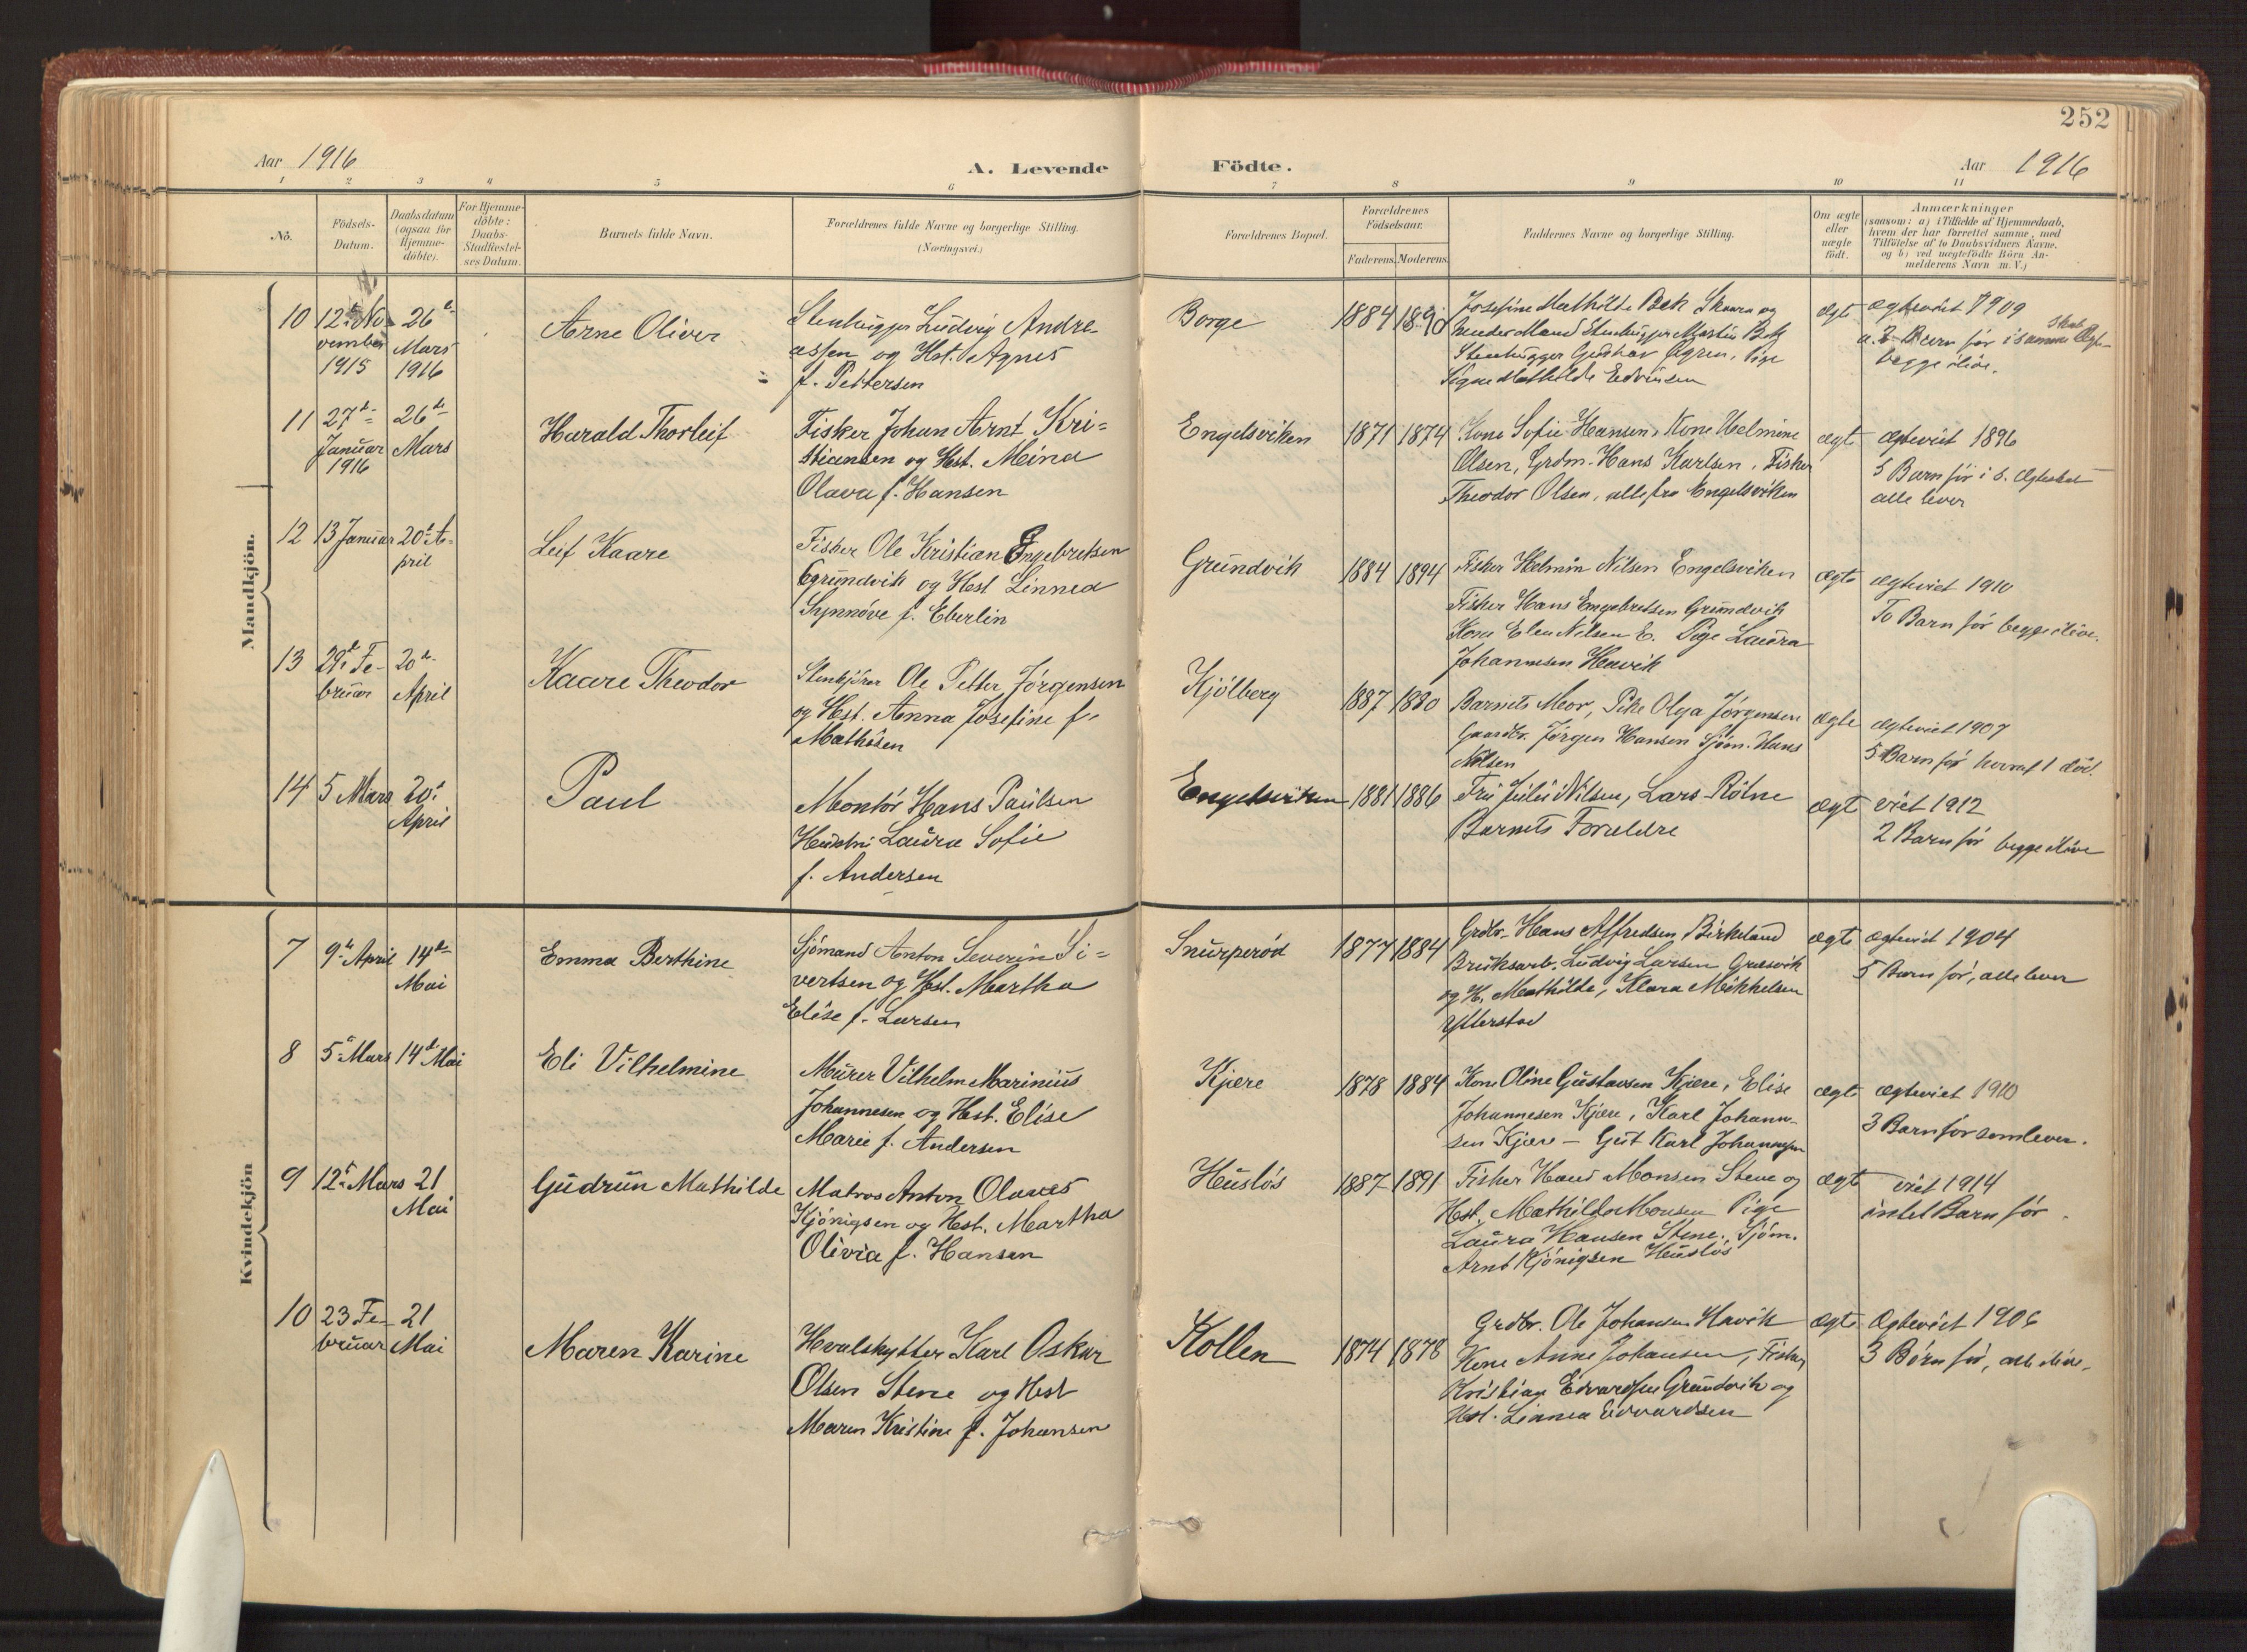 252
Aar 1916
A. Levende Födte.
Aar 1916
1 2 3 4 5 6 7 8 9 10 11
Nò.
Födsels-
Datum.
Daabsdatum
(ogsaa for
Hjemme-
döbte).
For Hjemme-
döbte:
Daabs-
Stadfæstel-
ses Datum.
Barnets fulde Navn.
Forældrenes fulde Navne og borgerlige Stilling.
(Næringsvei.)
Forældrenes Bopæl.
Forældrenes
Födselsaar.
Faderens. Moderens.
Faddernes Navne og borgerlige Stilling.
Om ægte
eller
uægte
födt.
Anmærkninger
(saasom: a) i Tilfælde af Hjemmedaab,
hvem der har forrettet samme, med
Tilföielse af to Daabsvidners Navne,
og b) ved uægtefödte Börn An-
melderens Navn m. V.)
Mandkjön.
10
12te No-
vember
1915
26de
Mars
1916
Arne Oliver
Stenhugger Ludvig Andre-
assen og Hst. Agnes
f. Pettersen
Borge
1884 1890
Josefine Mathilde Bek Skaara og
Mand Stenhugger Martin Bek
Stenhugger Gustav Agren, Pige
Signe Mathilde Edvinsen
ægt
ægteviet 1909
2 Barn før i samme Ægte-
skab
begge ilive.
11
27de
Januar
1916
26de
Mars
Harald Thorleif
Fisker Johan Arnt Kri=
stiansen og Hst. Meina
Olava f. Hansen
Engelsviken
1871 1874
Kone Sofie Hansen, Kone Helmine
Olsen, Grdm. Hans Karlsen, Fisker
Theodor Olsen, alle fra Engelsviken
ægt
ægteviet 1896
5 Barn før i s. Ægteskab
alle lever
12
13 Januar
20de A=
pril
Leif Kaare
Fisker Ole Kristian Engebretsen
Grundvik og Hst Linnea
Synnøve f. Eberlin
Grundvik
1884 1894
Fisker Helmin Nilsen Engelsviken
Fisker Hans Engebretsen Grundvik
Kone Elen Nilsen E. Pige Laura
Johannesen Haavik
ægte
ægteviet 1910
To Barn før begge ilive.
13
29de Fe-
bruar
20de
April
Kaare Theodor
Stenkjører Ole Petter Jørgensen
og Hst. Anna Josefine f.
Mathisen
Kjølberg
1887 1880
Barnets Mor, Pike Olga Jörgensen
Gaardbr. Jørgen Hansen Sjöm. Hans
Nilsen
ægte
ægteviet 1907
5 Barn før hvoraf 1 död.
14
5 Mars
20de
April
Paul
Montör Hans Paulsen
Hustru Laura Sofie
f. Andersen
Engelsviken
1881 1886
Fru Julie Nilsen, Lars Rölne
Barnets Forældre
ægt
viet 1912
2 Barn før begge ilive
Kvindekjön
7
9de April
14de
Mai
Emma Berthine
Sjömand Anton Severin Si=
vertsen og Hst. Martha
Elise f. Larsen
Snurperød
1877 1884
Grdbr. Hans Alfredsen Birkeland
Bruksarb. Ludvig Larsen Græsvik
og H. Mathilde, Klara Mikkelsen
Ytterstad
ægte
ægteviet 1904
5 Barn før, alle lever
8
5te Mars
14de Mai
Eli Vilhelmine
Murer Vilhelm Marinius
Johannesen og Hst. Elise
Marie f. Andersen
Kjære
1878 1884
Kone Oline Gustavsen Kjære, Elise
Johannesen Kjære, Karl Johann-
sen Kjære – Gut Karl Johannesen
ægte
ægteviet 1910
3 Barn før som lever.
9
12te Mars
21
Mai
Gudrun Mathilde
Matros Anton Olaves
Kjönigsen og Hst. Martha
Olivia f. Hansen
Husløs
1887 1891
Fisker Hans Monsen Stene og
Hst. Mathilde Monsen Pige
Laura Hansen Stene, Sjöm.
Arnt Kjönigsen Husløs
ægt
viet 1914
intet Barn før.
10
23 Fe-
bruar
21
Mai
Maren Karine
Hvalskytter Karl Oskar
Olsen Stene og Hst
Maren Kristine f. Johansen
Kollen
1874 1878
Grdbr. Ole Johansen Havik
Kone Anne Johansen, Fisker
Kristian Edvardsen Grundvik og
Hst. Linnea Edvardsen
ægte
Ægteviet 1906
3 Børn før, alle ilive.